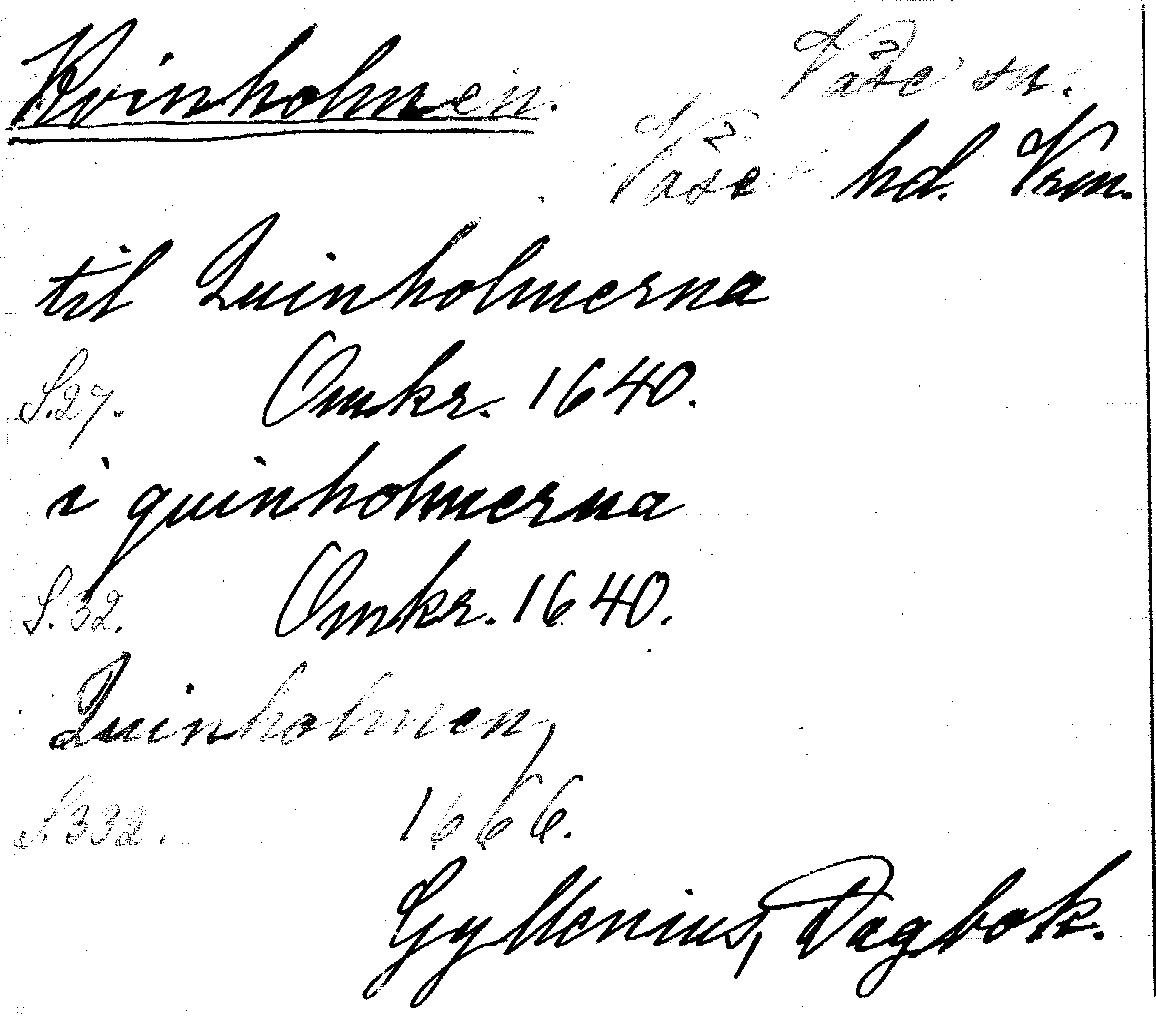 Kvinholmen.
Väse sn.
Väse hd. Vrm.
til Quinholmerna
S.27. Omkr. 1640.
i quinholmerna
S.32. Omkr. 1640.
Quinholmen,
S.332. 1666.
Gyllenius, Dagbok.